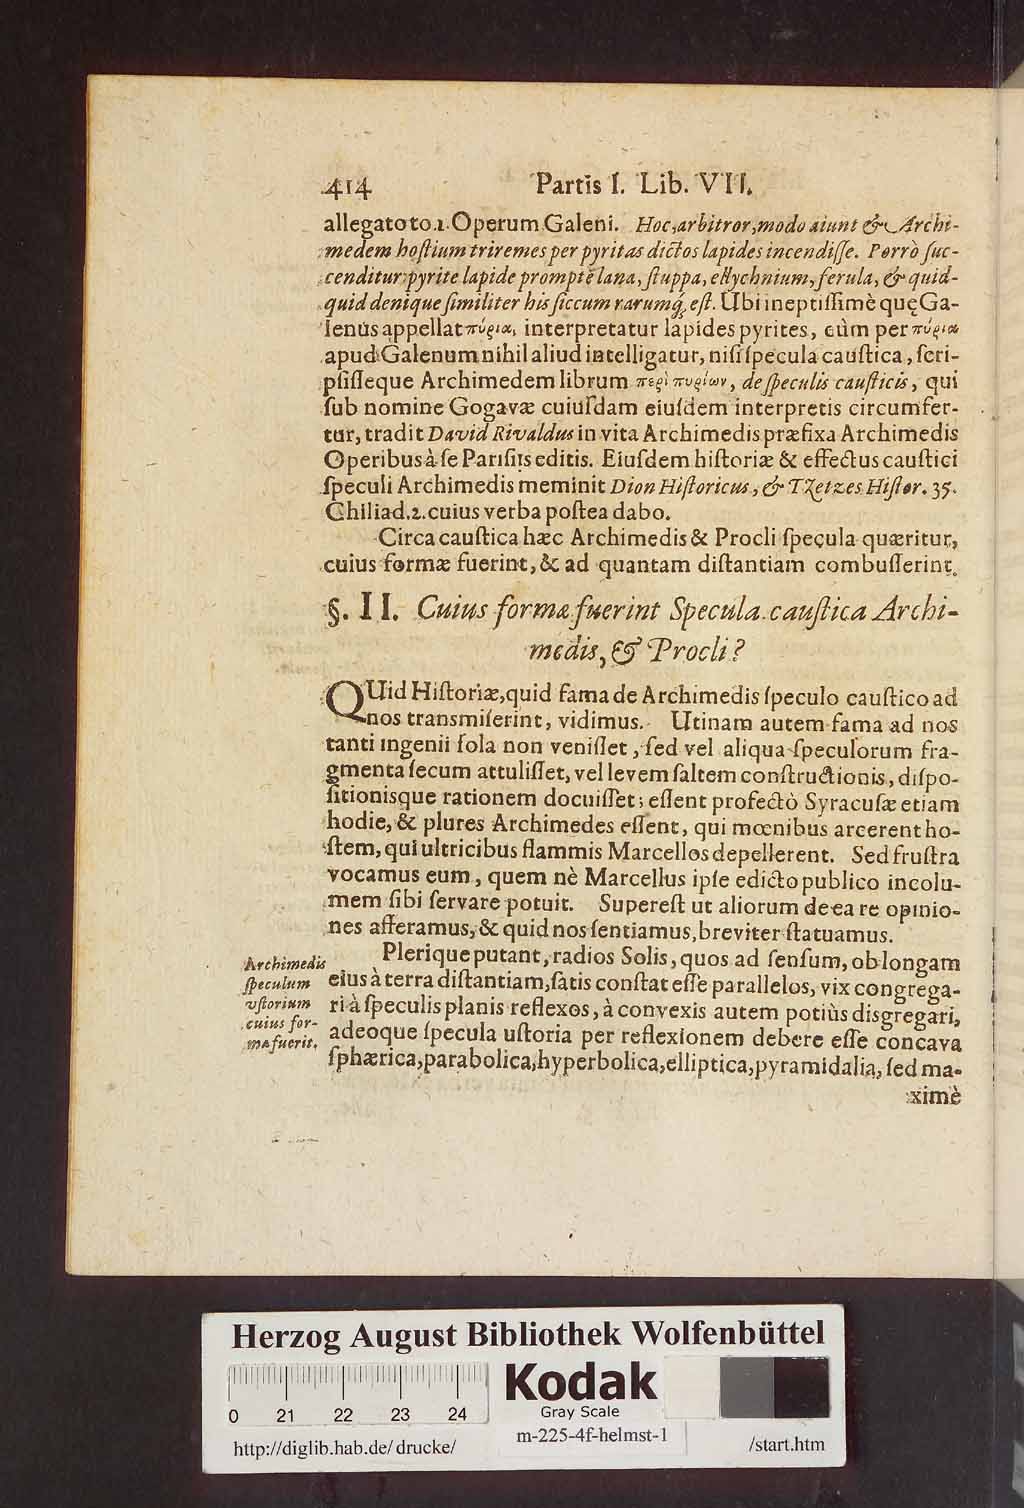 414 Partis I. Lib. VII.
allegato to.1. Operum Galeni. Hoc, arbitror, modo aiunt & Archi-
medem hoſtium triremes per pyritas dictos lapides incendiſſe. Porrò ſuc-
cenditur pyrite lapide promptè lana, ſtuppa, ellychnium, ferula, & quid-
quid denique ſimiliter his ſiccum rarumq́; eſt. Ubi ineptiſſimè quę Ga-
lenus appellat πύρια, interpretatur lapides pyrites, cùm per πύρια
apud Galenum nihil aliud intelligatur, niſi ſpecula cauſtica, ſcri-
pſiſſeque Archimedem librum περὶ πυρίων, de ſpeculis cauſticis, qui
ſub nomine Gogavæ cuiuſdam eiuſdem interpretis circumfer-
tur, tradit David Rivaldus in vita Archimedis præfixa Archimedis
Operibus à ſe Pariſiis editis. Eiuſdem hiſtoriæ & effectus cauſtici
ſpeculi Archimedis meminit Dion Hiſtoricus, & Tzetzes Hiſtor. 35.
Chiliad. 2. cuius verba poſtea dabo.
Circa cauſtica hæc Archimedis & Procli ſpecula quæritur,
cuius formæ fuerint, & ad quantam diſtantiam combuſſerint.
§. II. Cuius formæ fuerint Specula cauſtica Archi-
medis, & Procli?
QUid Hiſtoriæ, quid fama de Archimedis ſpeculo cauſtico ad
nos transmiſerint, vidimus. Utinam autem fama ad nos
tanti ingenii ſola non veniſſet, ſed vel aliqua ſpeculorum fra-
gmenta ſecum attuliſſet, vel levem ſaltem conſtructionis, diſpo-
ſitionisque rationem docuiſſet; eſſent profectò Syracuſæ etiam
hodie, & plures Archimedes eſſent, qui mœnibus arcerent ho-
ſtem, qui ultricibus flammis Marcellos depellerent. Sed fruſtra
vocamus eum, quem nè Marcellus ipſe edicto publico incolu-
mem ſibi ſervare potuit. Supereſt ut aliorum de ea re opinio-
nes afferamus, & quid nos ſentiamus, breviter ſtatuamus.
Archimedis
ſpeculum
vſtorium
cuius for-
mæ fuerit.
Plerique putant, radios Solis, quos ad ſenſum, ob longam
eius à terra diſtantiam, ſatis conſtat eſſe parallelos, vix congrega-
ri à ſpeculis planis reflexos, à convexis autem potiùs disgregari,
adeoque ſpecula uſtoria per reflexionem debere eſſe concava
ſphærica, parabolica, hyperbolica, elliptica, pyramidalia, ſed ma-
ximè
Herzog August Bibliothek Wolfenbüttel
0 21 22 23 24
Kodak
Gray Scale
http://diglib.hab.de/drucke/ m-225-4f-helmst-1 /start.htm